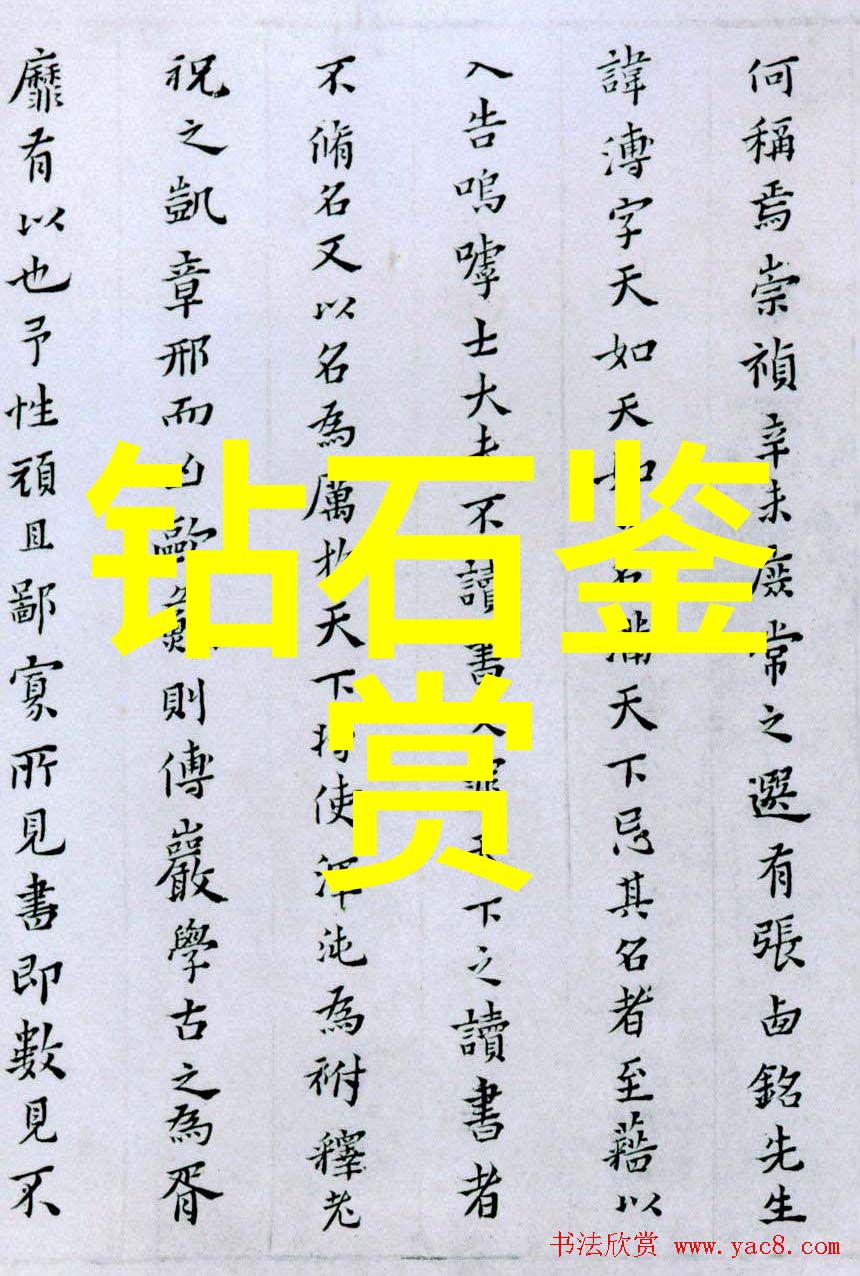 何稱焉崇禎辛未庶常之選有張卥銘先生
諱溥字天如天如名滿天下忌其名者至藉以
入告嗚嘑士大夫不讀書天下之讀書者
不脩名又以名為厲於天下使渾沌為祔釋老
祝之凱章邢而歐則傅巖學古之為胥
靡有以也予性頑且鄙寡所見書即數見不
钻石鉴
赏
书法欣赏 www.yac8.com